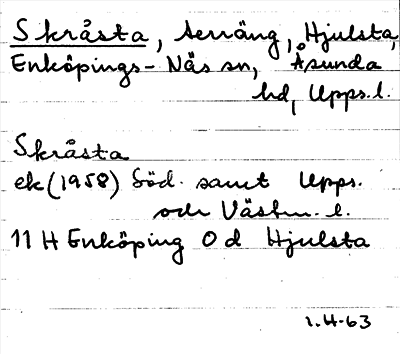 Skråsta, terräng, Hjulsta,
Enköpings-Näs sn, Åsunda
hd, Upps. l.
Skråsta
ek (1958) Söd. samt Upps.
och Västm. l.
11 H Enköping 0 d Hjulsta
1.4.63